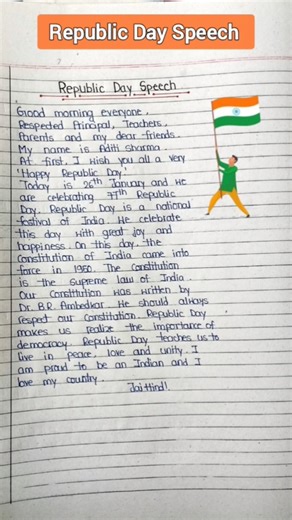 Republic Day Speech
Republic Day Speech
Good morning everyone.
Respected Principal, Teachers,
Parents and my dear friends.
My name is Aditi Sharma.
At first, I wish you all a very
'Happy Republic Day.'
Today is 26th January and we
are celebrating 77th Republic
Day. Republic Day is a national
festival of India. We celebrate
this day with great joy and
happiness. On this day, the
Constitution of India came into
force in 1950. The Constitution
is the Supreme law of India.
Our Constitution was written by
Dr. B.R. Ambedkar. We should always
respect our Constitution. Republic Day
makes us realize the importance of
democracy. Republic Day teaches us to
live in peace, love and unity. I
am proud to be an Indian and I
love my country.
Jai Hind!